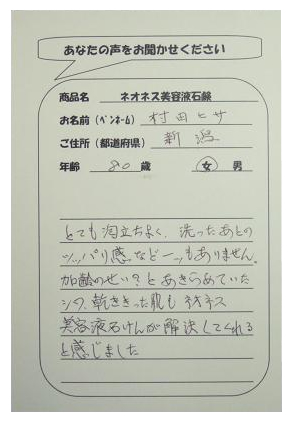 あなたの声をお聞かせください
商品名 ネオネス美容液石鹸
お名前(ペンネーム) 村田ヒサ
ご住所(都道府県) 新潟
年齢 80 歳 女 男
とても泡立ちよく、洗ったあとの
ツッパリ感など一つもありません。
加齢のせい?とあきらめていた
シワ、乾ききった肌もネオネス
美容液石けんが解決してくれる
と感じました